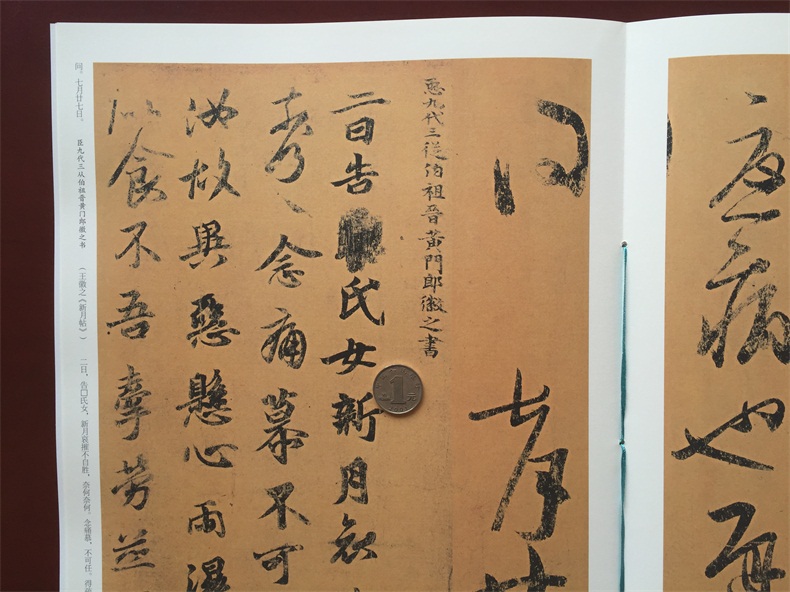 疾病也
七月廿
臣九代三從伯祖晉黄門郎徽之書
二日告氏女新月哀
奈何、念痛慕不可
汝故異惡懸心雨濕
似食不吾牽勞並
七月廿七日。 臣九代三从伯祖晋黄门郎徽之书 (王徽之《新月帖》) 二日,告□氏女,新月哀摧不自胜,奈何奈何。念痛慕,不可任。得
1